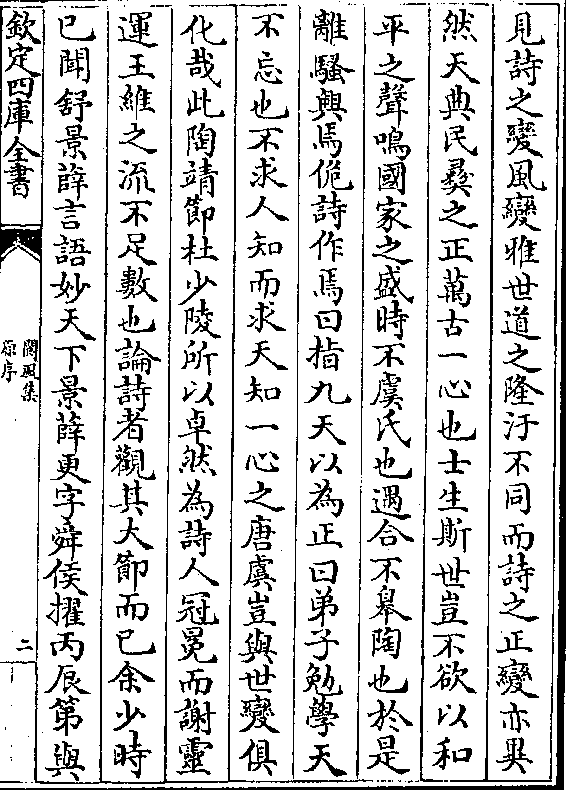 見詩之變風變雅世道之隆汙不同而詩之正變亦異
然天典民彝之正萬古一心也士生斯世豈不欲以和
平之聲鳴國家之盛時不虞氏也遇合不皋陶也於是
離騷興焉佹詩作焉曰指九天以為正曰弟子勉學天
不忘也不求人知而求天知一心之唐虞豈與世變俱
化哉此陶靖節杜少陵所以卓然為詩人冠冕而謝靈
運王維之流不足數也論詩者觀其大節而已余少時
已聞舒景薛言語妙天下景薛更字舜侯擢丙辰第與
欽定四庫全書
閬風集
原序
二